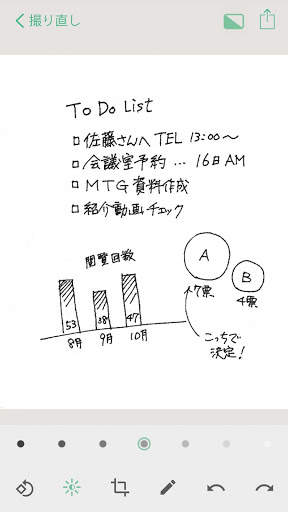 撮り直し
To Do List
□ 佐藤さんへ TEL 13:00〜
□ 会議室予約 … 16日 AM
□ MTG 資料作成
□ 紹介動画チェック
閲覧回数
53
38
47
8月
9月
10月
A
17票
B
4票
こっちで
決定！